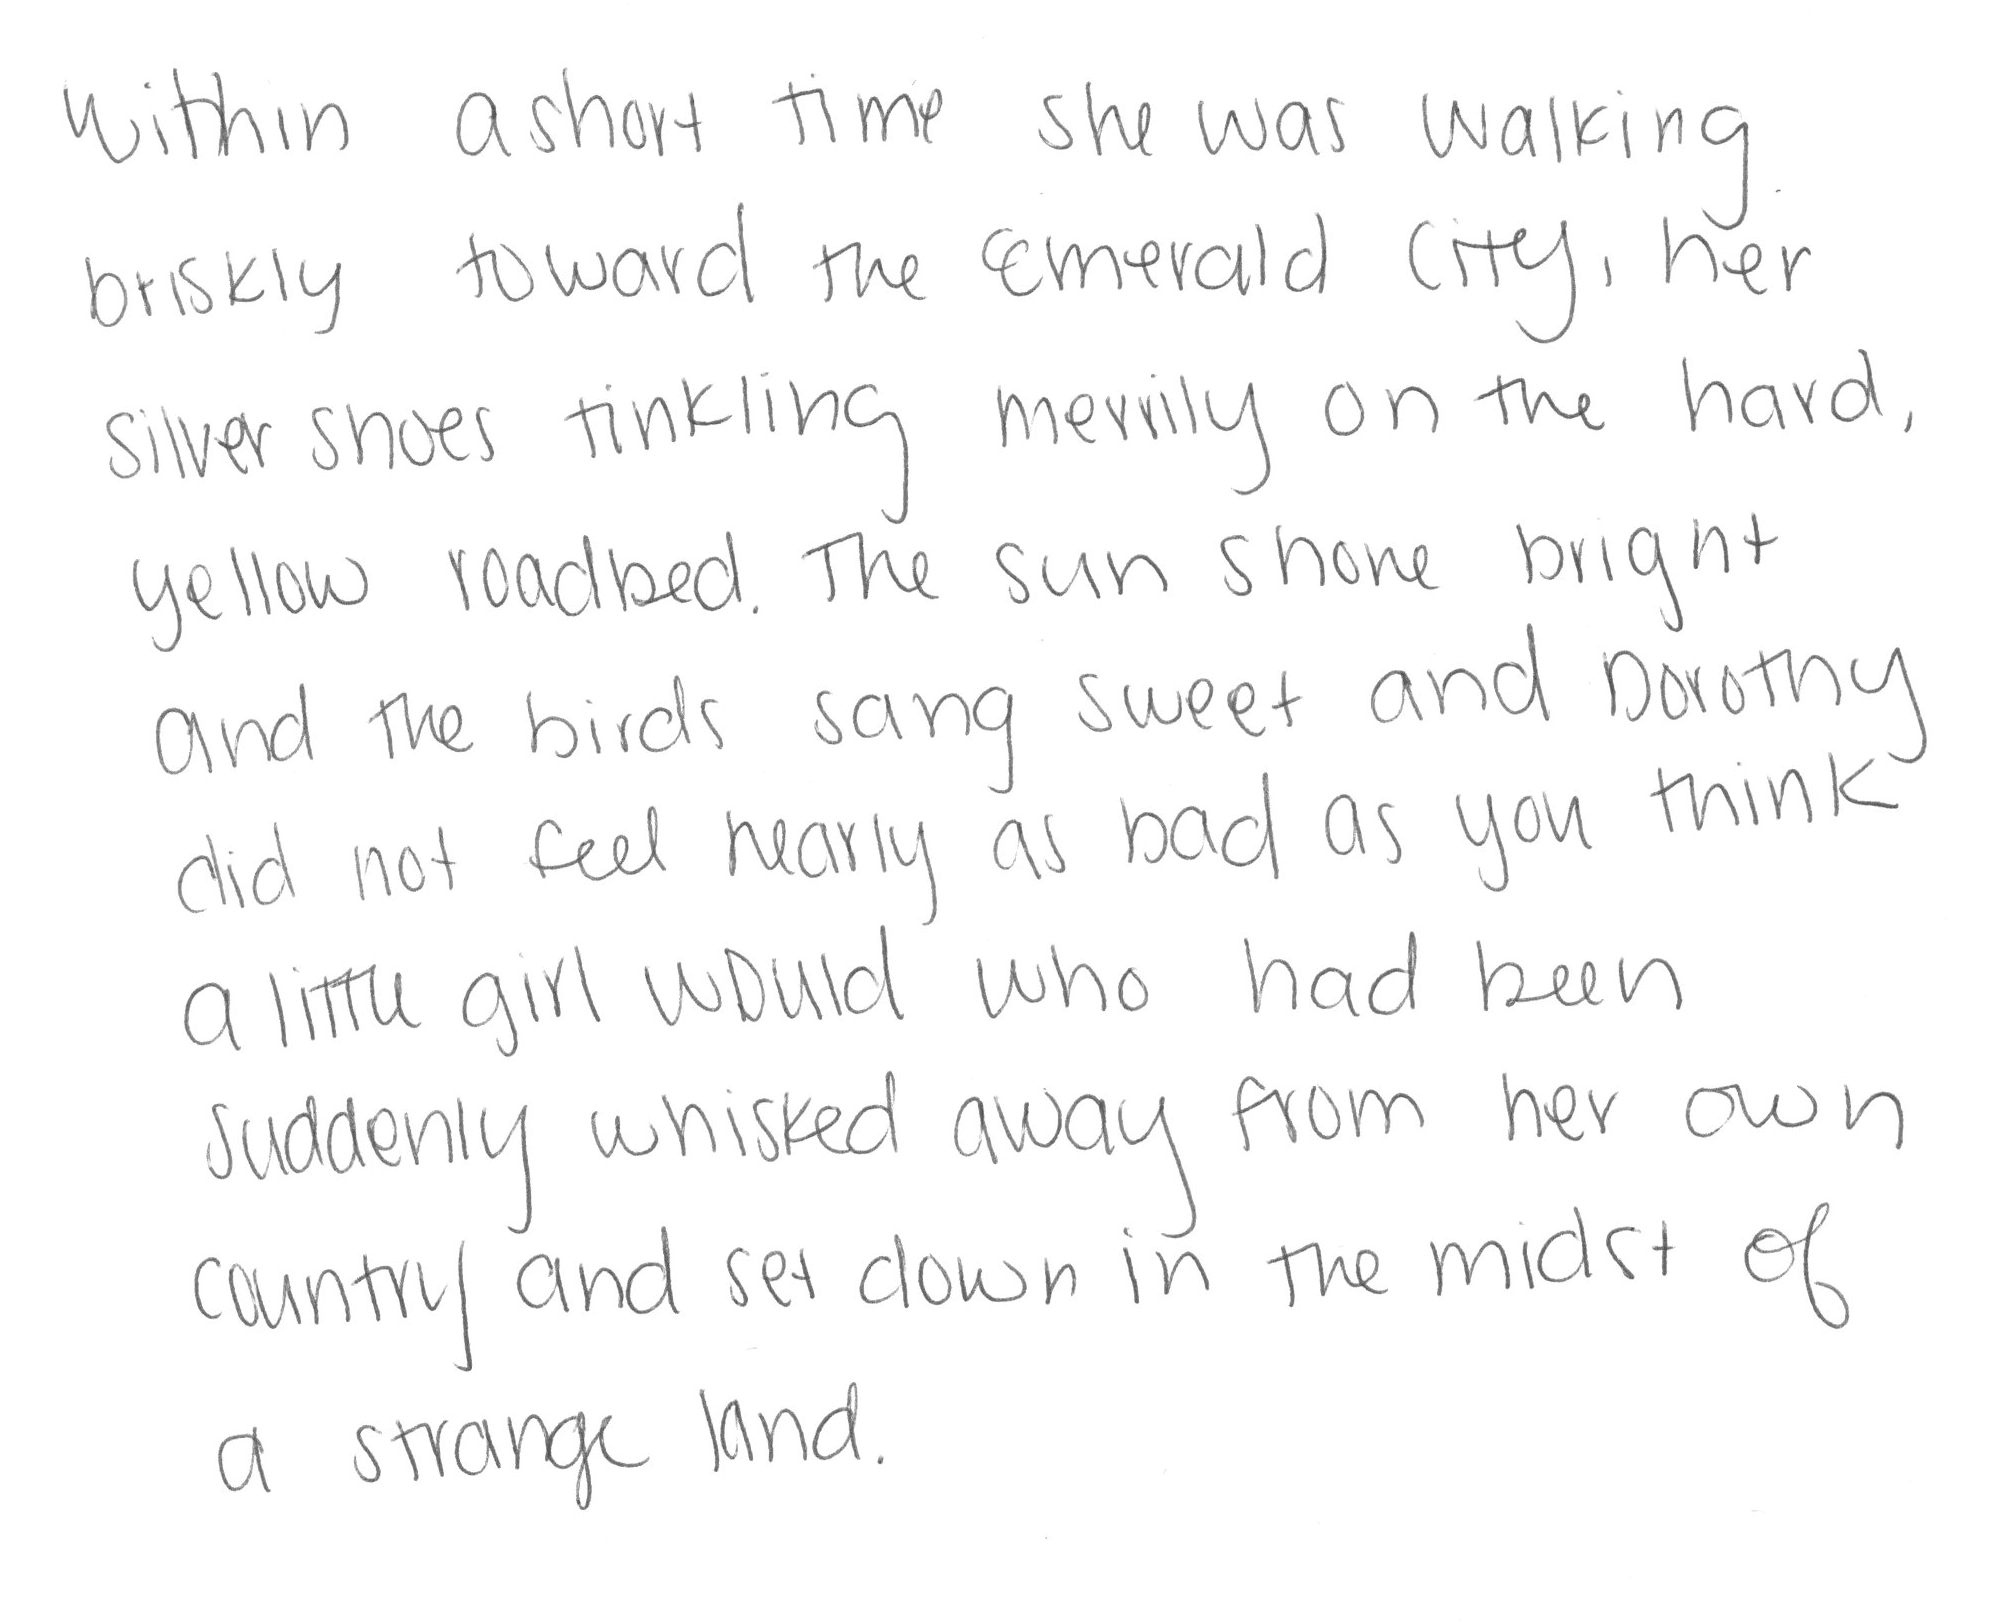 Within a short time she was walking
briskly toward the Emerald City, her
silver shoes tinkling merrily on the hard,
yellow roadbed. The sun shone bright
and the birds sang sweet and Dorothy
did not feel nearly as bad as you think
a little girl would who had been
suddenly whisked away from her own
country and set down in the midst of
a strange land.